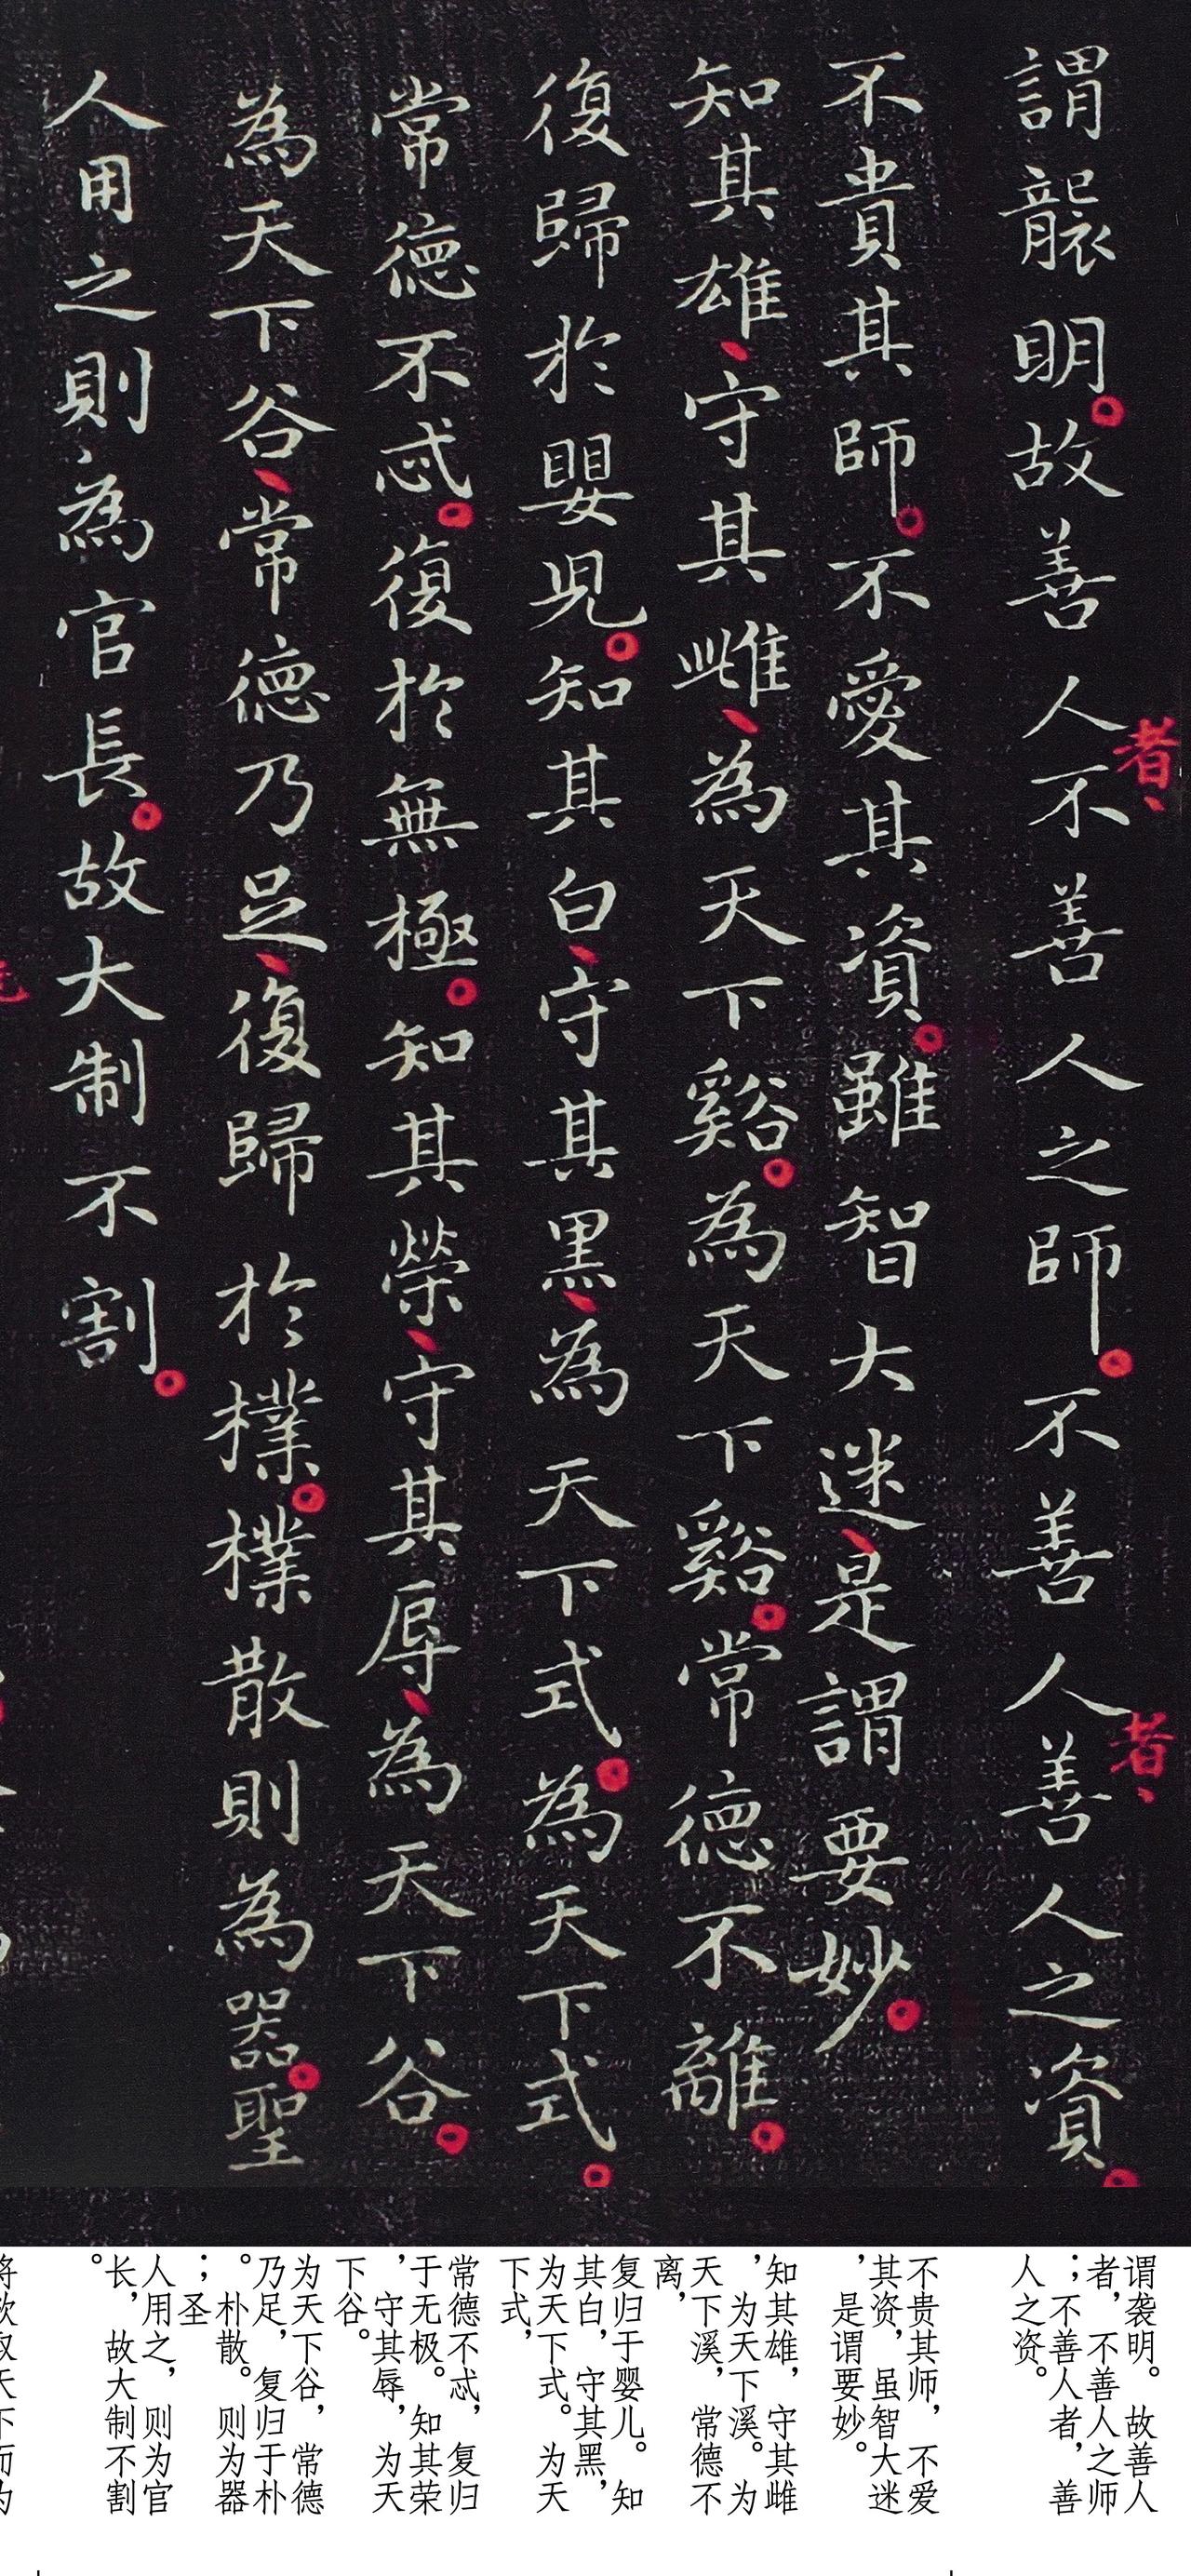 謂襲明故善人者不善人之師不善人者善人之資
不貴其師不愛其資雖智大迷是謂要妙
知其雄守其雌為天下谿為天下谿常德不離
復歸於嬰児知其白守其黑為天下式為天下式
常德不忒復於無極知其榮守其辱為天下谷
為天下谷常德乃足復歸於樸樸散則為器聖
人用之則為官長故大制不割
谓袭明。故善人
者，不善人之师
；不善人者，善
人之资。
不贵其师，不爱
其资，虽智大迷
，是谓要妙。
知其雄，守其雌
，为天下溪。为
天下溪，常德不
离，
复归于婴儿。知
其白，守其黑，
为天下式。为天
下式，
常德不忒，复归
于无极。知其荣
，守其辱，为天
下谷。
为天下谷，常德
乃足，复归于朴
。朴散。则为器
；圣
人用之，则为官
长，故大制不割
。